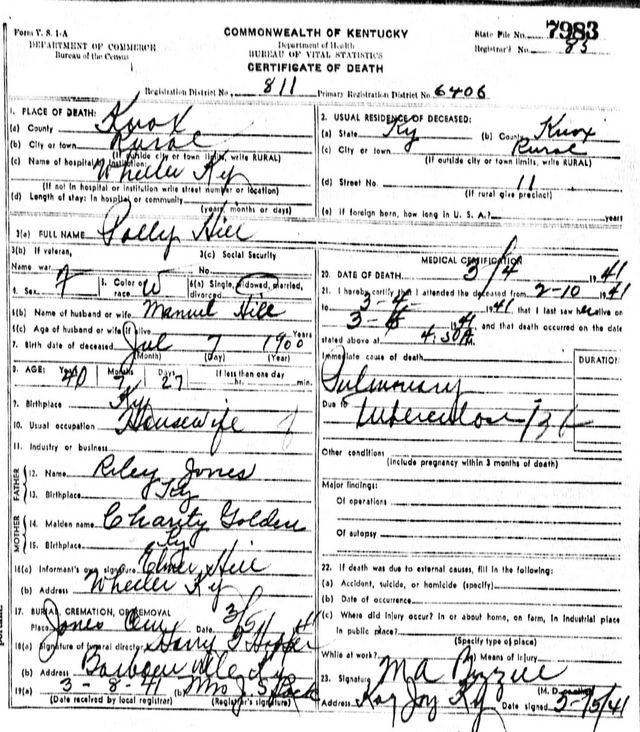 Form V. S. 1-A
DEPARTMENT OF COMMERCE
Bureau of the Census
COMMONWEALTH OF KENTUCKY
Department of Health
BUREAU OF VITAL STATISTICS
CERTIFICATE OF DEATH
State File No. 7983
Registrar's No. 85
Registration District No. 811 Primary Registration District No. 6406
1. PLACE OF DEATH:
(a) County Knox
(b) City or town Rural
(If outside city or town limits, write RURAL)
(c) Name of hospital or institution: Wheeler Ky
(If not in hospital or institution write street number or location)
(d) Length of stay: In hospital or community
(years, months or days)
2. USUAL RESIDENCE OF DECEASED:
(a) State Ky (b) County Knox
(c) City or town Rural
(If outside city or town limits, write RURAL)
(d) Street No. 11
(If rural give precinct)
(e) If foreign born, how long in U. S. A.? years
3(a) FULL NAME Polly Hill
3(b) If veteran,
Name war
3(c) Social Security
No.
4. Sex F 5. Color or race W 6(a) Single, widowed, married, divorced
6(b) Name of husband or wife Manuel Hill
6(c) Age of husband or wife if alive years
7. Birth date of deceased Jul 7 1900
(Month) (Day) (Year)
8. AGE: Years 40 Months 7 Days 27 If less than one day hr. min.
9. Birthplace Ky
10. Usual occupation Housewife
11. Industry or business
FATHER
12. Name Riley Jones
13. Birthplace Ky
MOTHER
14. Maiden name Charity Golden
15. Birthplace Ky
16(a) Informant's own signature Elmer Hill
(b) Address Wheeler Ky
17. BURIAL, CREMATION, OR REMOVAL
Place Jones Cem Date 3/5/41
18(a) Signature of funeral director Harry
(b) Address Barbourville Ky
19(a) 3-8-41 (b) Mrs J. S.
(Date received by local registrar) (Registrar's signature)
MEDICAL CERTIFICATION
20. DATE OF DEATH 3/4 1941
21. I hereby certify that I attended the deceased from 2-10 1941
to 3-4 1941 that I last saw her alive on
3- 41 and that death occurred on the date
stated above at 4:30A.
Immediate cause of death DURATION
Pulmonary
Due to Tuberculosis
Other conditions
(include pregnancy within 3 months of death)
Major findings:
Of operations
Of autopsy
22. If death was due to external causes, fill in the following:
(a) Accident, suicide, or homicide (specify)
(b) Date of occurrence
(c) Where did injury occur? In or about home, on farm, in industrial place
In public place?
(Specify type of place)
While at work? (e) Means of Injury
23. Signature M A
(M. D. or other)
Address Kay Jay Ky Date signed 3-15/41